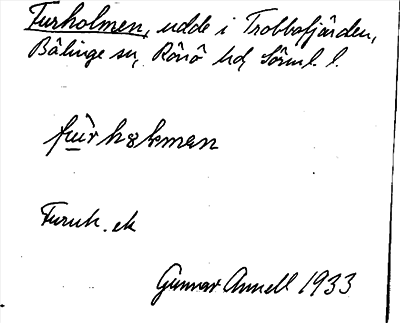 Furholmen, udde i Trobbofjärden,
Bälinge sn, Rönö hd, Sörml. l.
fùrhɷlmen
Furuh. ek
Gunnar Annell 1933